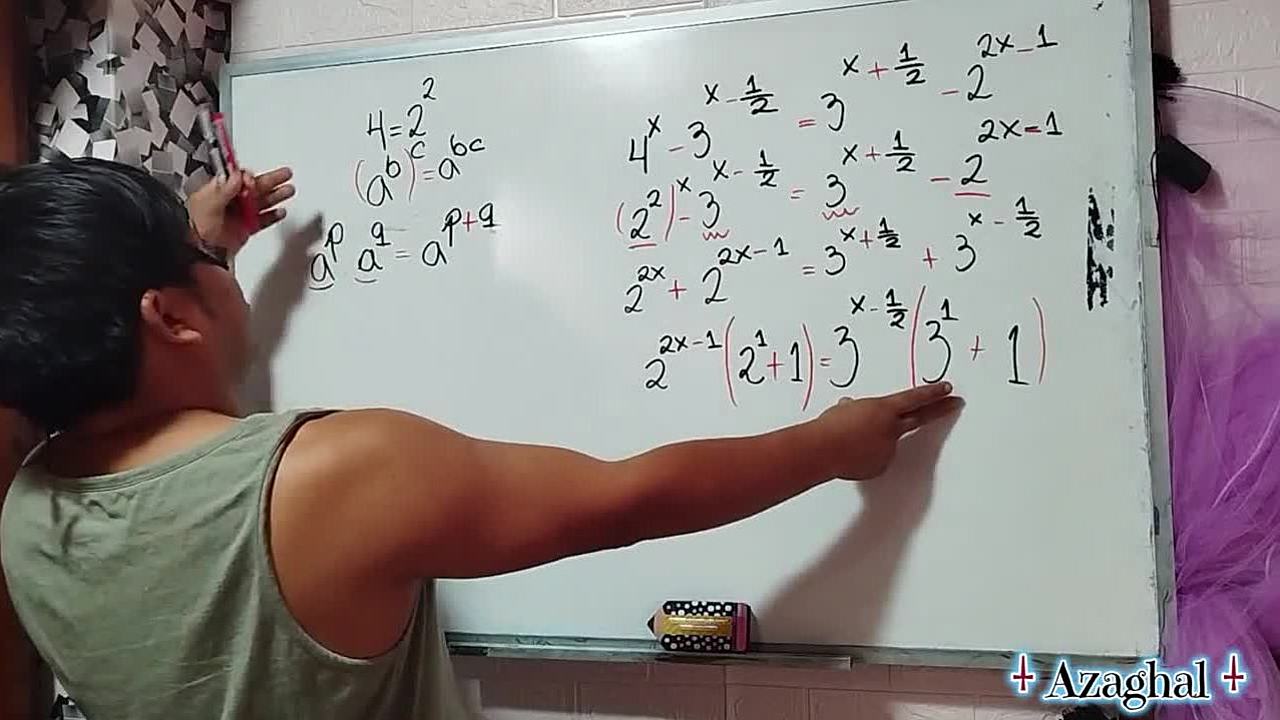 4 = 2²
(a^b)^c = a^{bc}
a^p a^q = a^{p+q}
4^x - 3^{x - 1/2} = 3^{x + 1/2} - 2^{2x - 1}
(2²)^x - 3^{x - 1/2} = 3^{x + 1/2} - 2^{2x - 1}
2^{2x} + 2^{2x - 1} = 3^{x + 1/2} + 3^{x - 1/2}
2^{2x - 1} (2^1 + 1) = 3^{x - 1/2} (3^1 + 1)
Azaghal